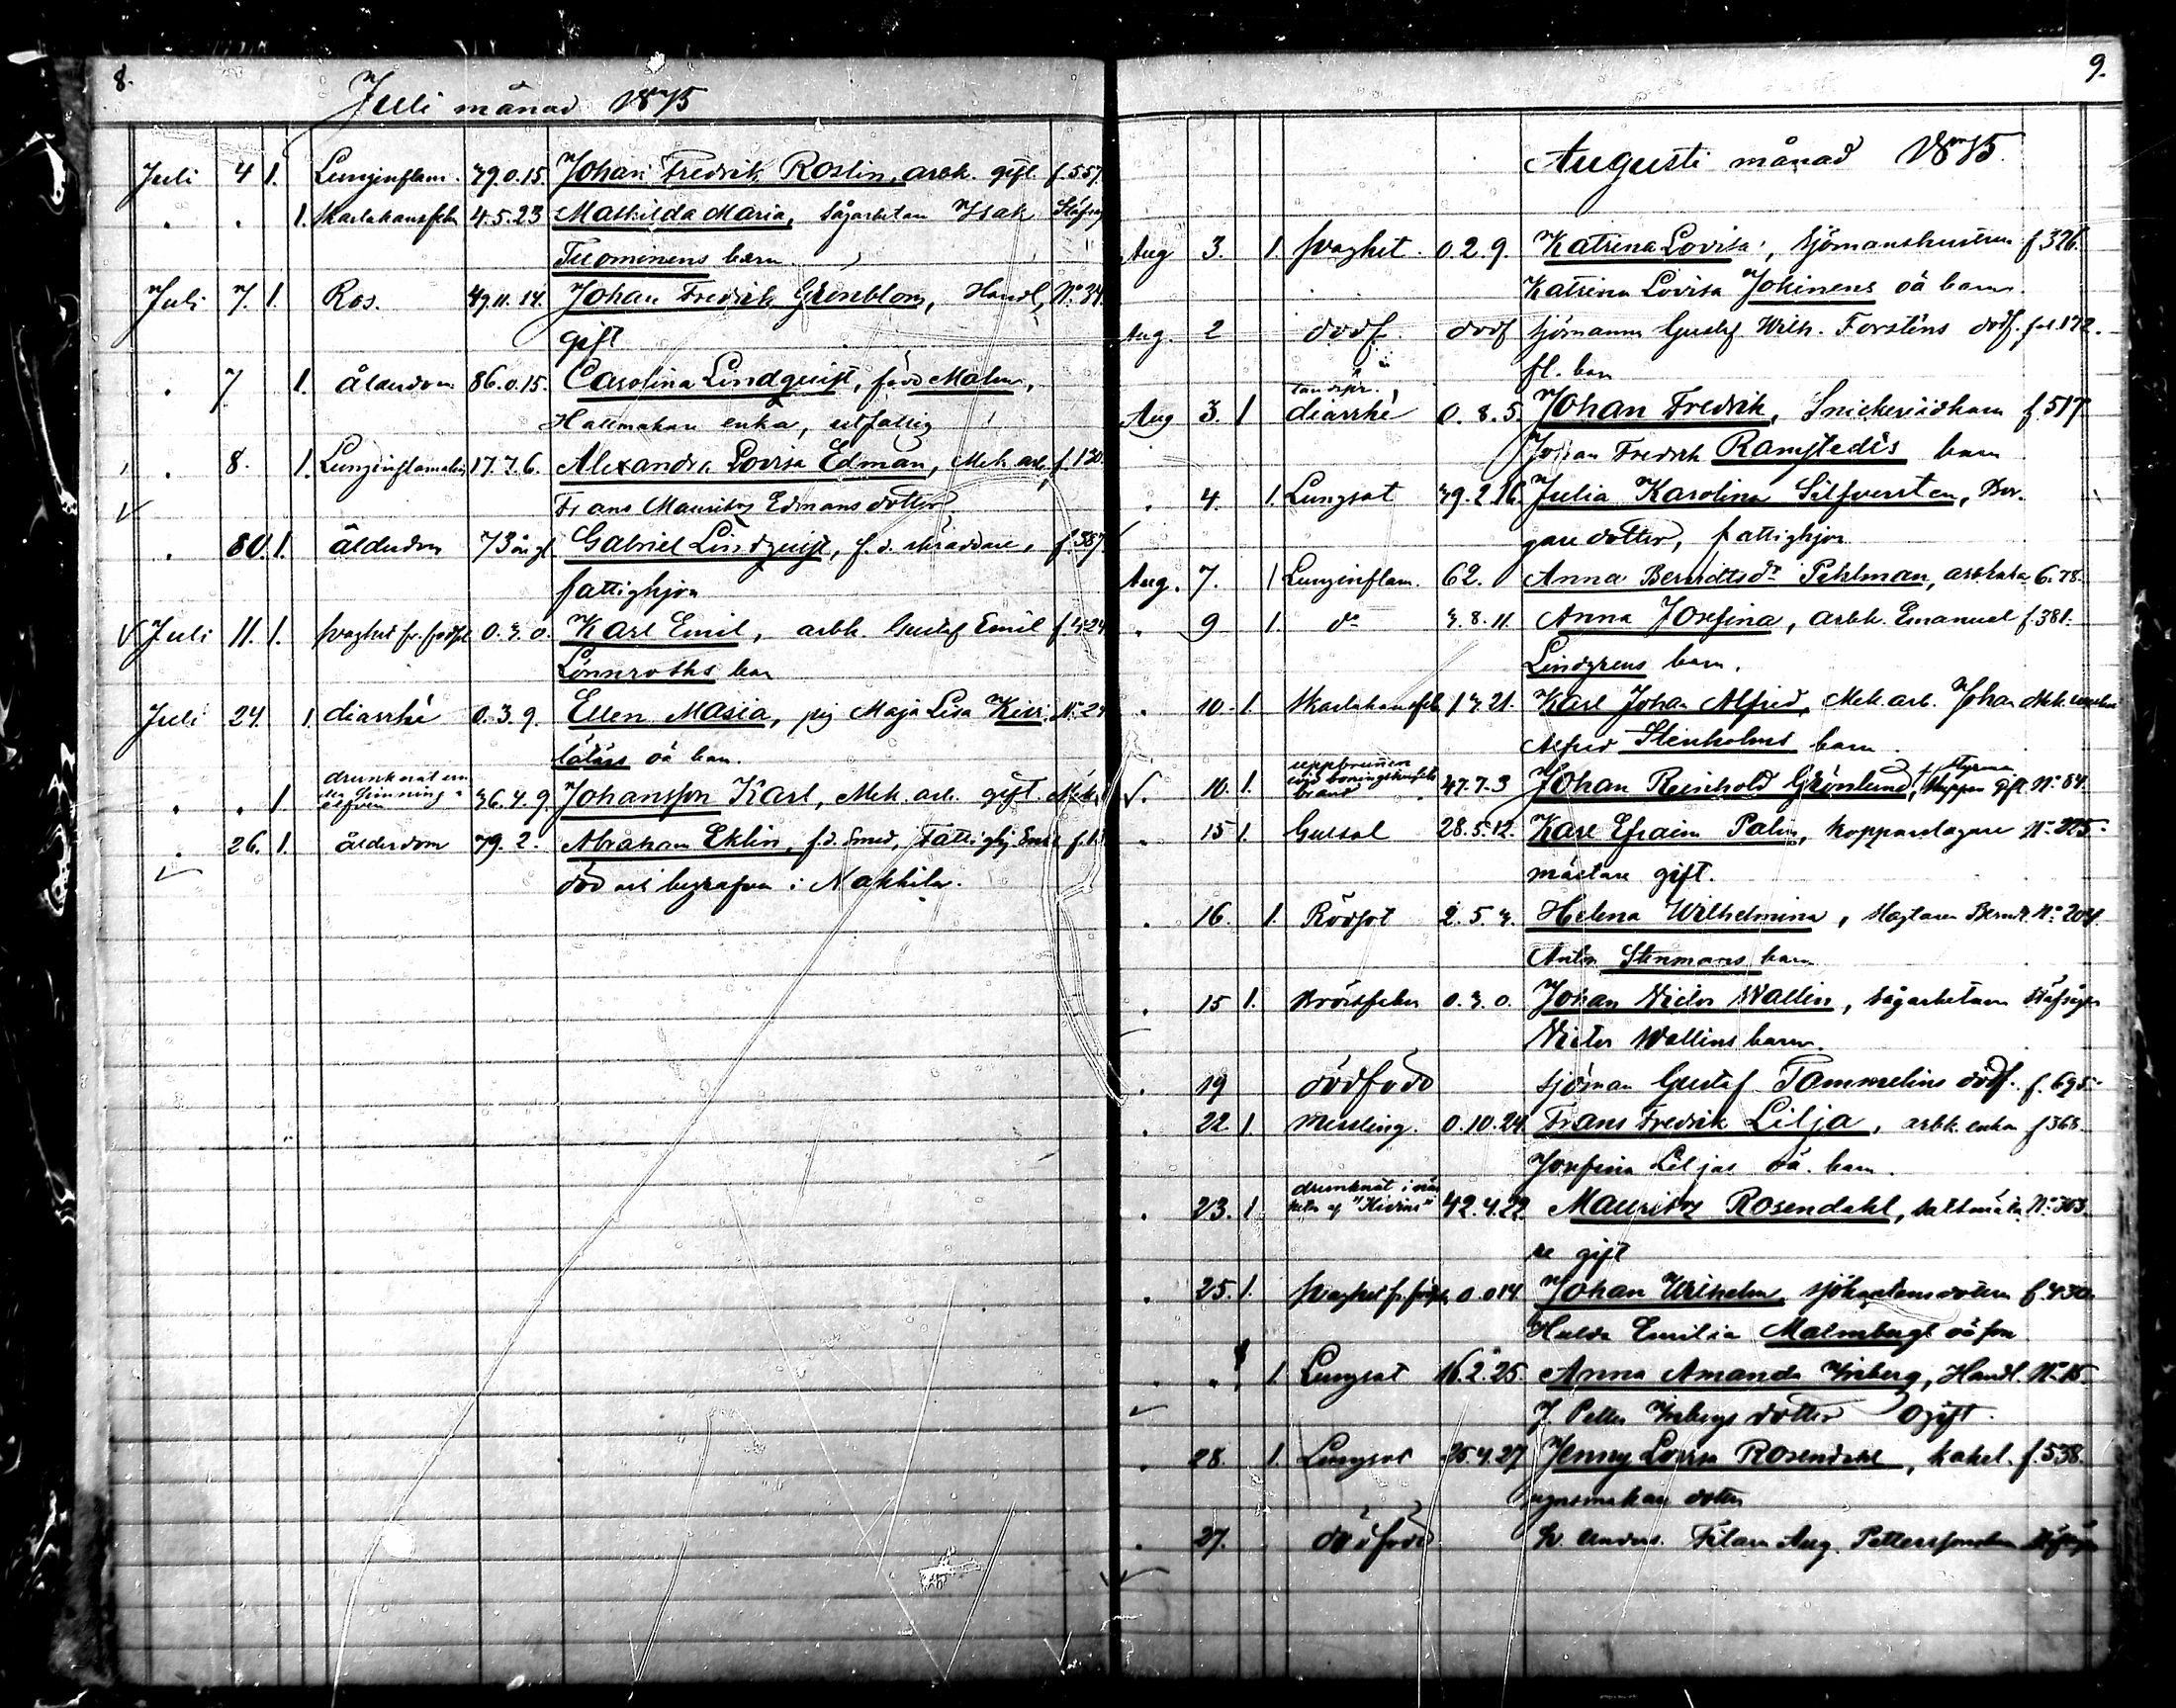 8.
Juli månad 1875
Juli 4 1. Lunginflam. 39.0.15. Johan Fredrik Roslin, arbk. gift f. 557.
" " 1. Skarlakansfeber 4.5.23 Mathilda Maria, Sågarbetaren Isak
Tuominens barn
Juli 7. 1. Ros. 49.11.14. Johan Fredrik Grönblom, Handl. No 34.
gift
" 7 1. ålderdom 86.0.15. Carolina Lindqvist, född Malm,
Hattmakare enka, utfattig
" 8. 1. Lunginflamation 17.7.6. Alexandra Lovisa Edman, Mek. arb. f. 130.
Frans Mauritz Edmans dotter
" 80. 1. ålderdom 73 år gl. Gabriel Lindqvist, f.d. skräddare, f. 387
fattighjon
Juli 11. 1. svaghet fr. födsel 0.3.0. Karl Emil, arbk. Gustaf Emil f. 424
Lönnroths barn
Juli 24. 1. diarrhé 0.3.9. Ellen Maria, pig Maja Lisa Kivi No 24
lätäis oä barn.
" " 1. drunknat under simning i elfven 36.4.9. Johansson Karl, Mek. arb. gift Mek.
" 26. 1. ålderdom 79.2. Abraham Eklin, f.d. Smed, Fattighj. Enkl.
död och begrafven i Nakkila.
9.
Augusti månad 1875.
Aug 3. 1. svaghet. 0.2.9. Katrina Lovisa, sjömanshustrun f. 326.
Katrina Lovisa Johinens oä barn.
Aug. 2 dödf. dödf sjömannen Gustaf Wilh. Forsténs dödf. fol. 172.
fl. barn
tandspr.
Aug 3. 1 diarrhé 0.8.5. Johan Fredrik, Snickeriidkaren f. 517
Johan Fredrik Ramstedts barn
" 4. 1. Lungsot 39.2.16. Julia Karolina Silfversten, Bor-
gare dotter, fattighjon
Aug. 7. 1 Lunginflam. 62. Anna Berndtsdr Pehlman, 678.
" 9 1. do 3.8.11. Anna Josefina, arbk. Emanuel f. 381.
Lindgrens barn.
" 10. 1. Skarlakansfeb 1 3.21. Karl Johan Alfred, Mek. arb. Johan
Alfred Stenholms barn.
" 10. 1. uppbrunnen vid boningshusets brand 47.7.3 Johan Reinhold Grönlund, Skeppar gift. No 84.
" 15 1. Gulsot 28.5.12. Karl Efraim Palin, Kopparslagare No 225.
mästare gift.
" 16. 1. Rödsot 2.5.3. Helena Wilhelmina, Slagtaren Berndt No 204.
Anton Stenmans barn
" 15 1. Bröstfeber 0.3.0. Johan Victor Wallin, Sågarbetaren
Victor Wallins barn.
" 19 dödfödd sjöman Gustaf Tammelins dödf. f. 695.
" 22 1. Messling. 0.10.24. Frans Fredrik Lilja, arbk. enkan f 368.
Josefina Liljas oä. barn.
" 23. 1. drunknat i närheten af "Kivini" 42.4.22 Mauritz Rosendahl, saltmäta No 303.
re gift
" 25. 1. svaghet fr. födsel 0.0.14. Johan Wilhelm, sjökaptensdottern f. 430.
Hulda Emilia Malmbergs oä son
" " 1. Lungsot 16.2.25. Anna Amanda Inberg, Handl. No 15.
J Petter Inbergs dotter Ogift.
" 28. 1. Lungsot 25.4.27 Jenny Lovisa Rosendahl, kakel- f. 538.
ugnsmakare dotter
" 27. dödfödd Filaren Aug. Petterssons